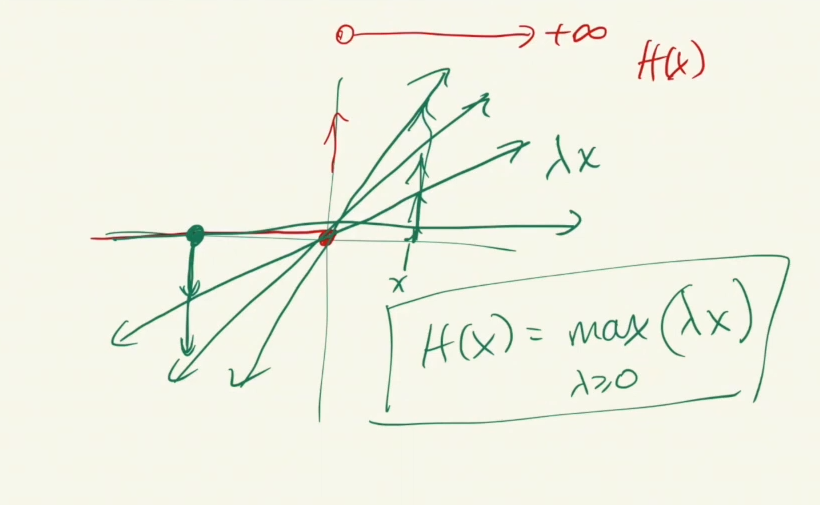 +∞
H(x)
λx
x
H(x) = max (λx)
λ≥0